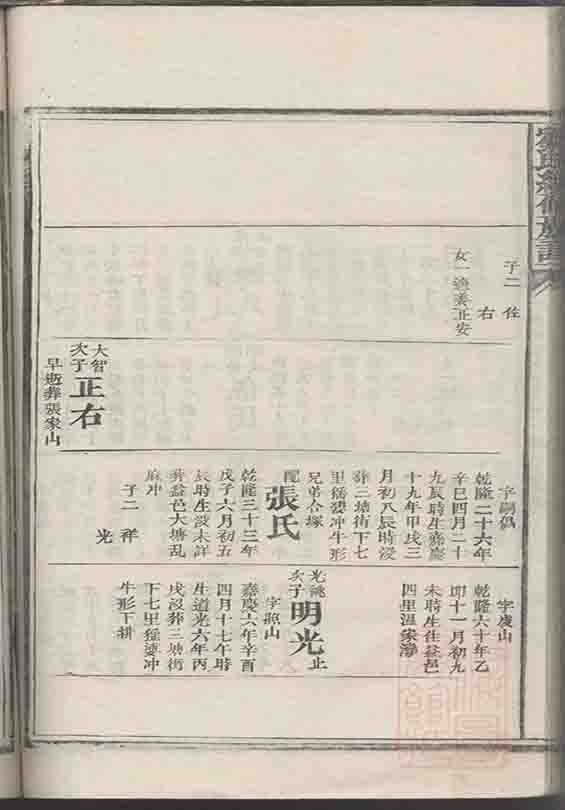 氏續修族譜
子二 佐
右
女一適姜正安
大智
次子
正右
早逝葬張家山
字嗣
乾隆二十六年
辛巳四月二十
九辰時生嘉慶
十九年甲戌三
月初八辰時歿
葬三塘街下七
里猺婆冲牛形
兄弟合塚
配
張氏
乾隆三十三年
戊子六月初五
辰時生歿未詳
葬益邑大塘乱
麻冲
子二 祥
光
字虔山
乾隆六十年乙
卯十一月初九
未時生住益邑
四里溫家灣
光
次子
明光
止
字
山
嘉慶六年辛酉
四月十七午時
生道光六年丙
戌歿葬三塘街
下七里猺婆冲
牛形下排